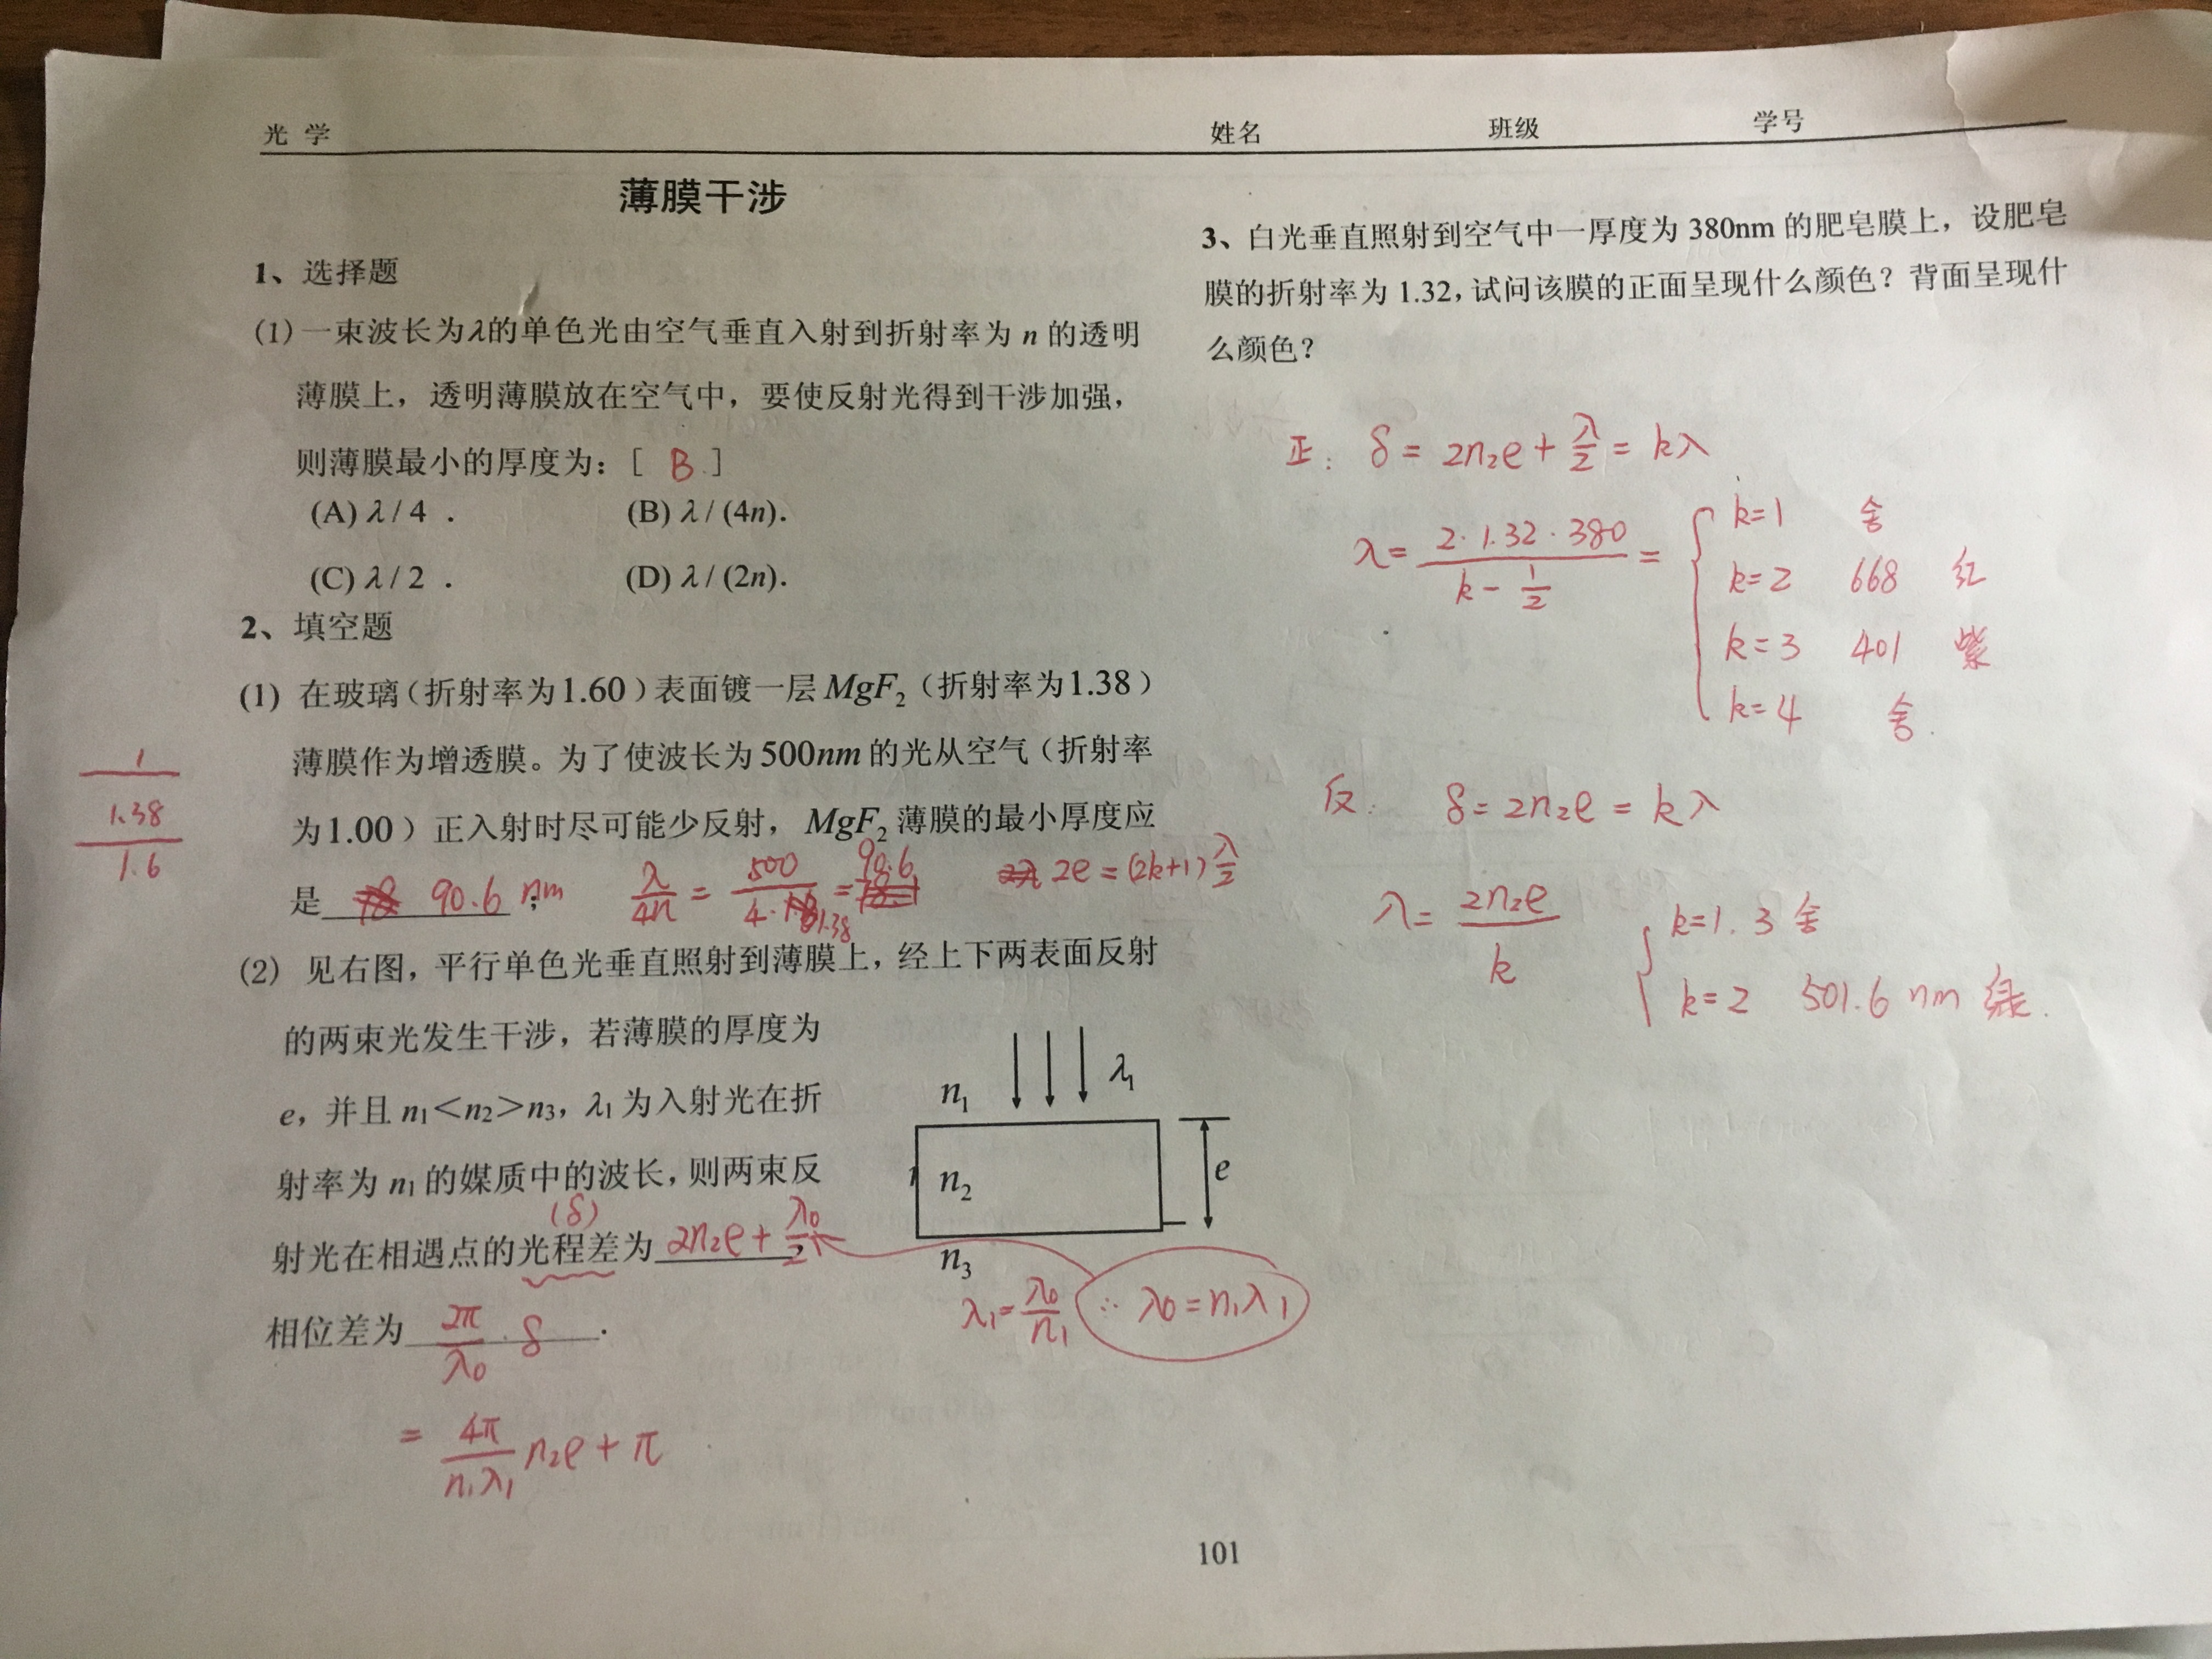 光 学 姓名 班级 学号
薄膜干涉
1、选择题
(1) 一束波长为λ的单色光由空气垂直入射到折射率为 n 的透明
薄膜上，透明薄膜放在空气中，要使反射光得到干涉加强，
则薄膜最小的厚度为：[ B ]
(A) λ / 4 .  (B) λ / (4n).
(C) λ / 2 .  (D) λ / (2n).
2、填空题
(1) 在玻璃（折射率为1.60）表面镀一层 MgF₂（折射率为1.38）
薄膜作为增透膜。为了使波长为500nm的光从空气（折射率
为1.00）正入射时尽可能少反射，MgF₂薄膜的最小厚度应
是 90.6 nm ; λ/4n = 500/4·1.38 = 90.6  2e = (2k+1) λ/2
1
1.38
1.6
(2) 见右图，平行单色光垂直照射到薄膜上，经上下两表面反射
的两束光发生干涉，若薄膜的厚度为
e，并且 n₁＜n₂＞n₃，λ₁ 为入射光在折
射率为 n₁ 的媒质中的波长，则两束反
(δ)
射光在相遇点的光程差为 2n₂e + λ₀/2
相位差为 2π/λ₀ · δ .
= 4π/n₁λ₁ n₂e + π
n₁ λ₁
n₂ e
n₃
λ₁ = λ₀/n₁ ∴ λ₀ = n₁λ₁
3、白光垂直照射到空气中一厚度为 380nm 的肥皂膜上，设肥皂
膜的折射率为 1.32，试问该膜的正面呈现什么颜色？背面呈现什
么颜色？
正: δ = 2n₂e + λ/2 = kλ
λ = 2·1.32·380 / k - 1/2 =
k=1 舍
k=2 668 红
k=3 401 紫
k=4 舍.
反: δ = 2n₂e = kλ
λ = 2n₂e / k
k=1. 3 舍
k=2 501.6 nm 绿.
101